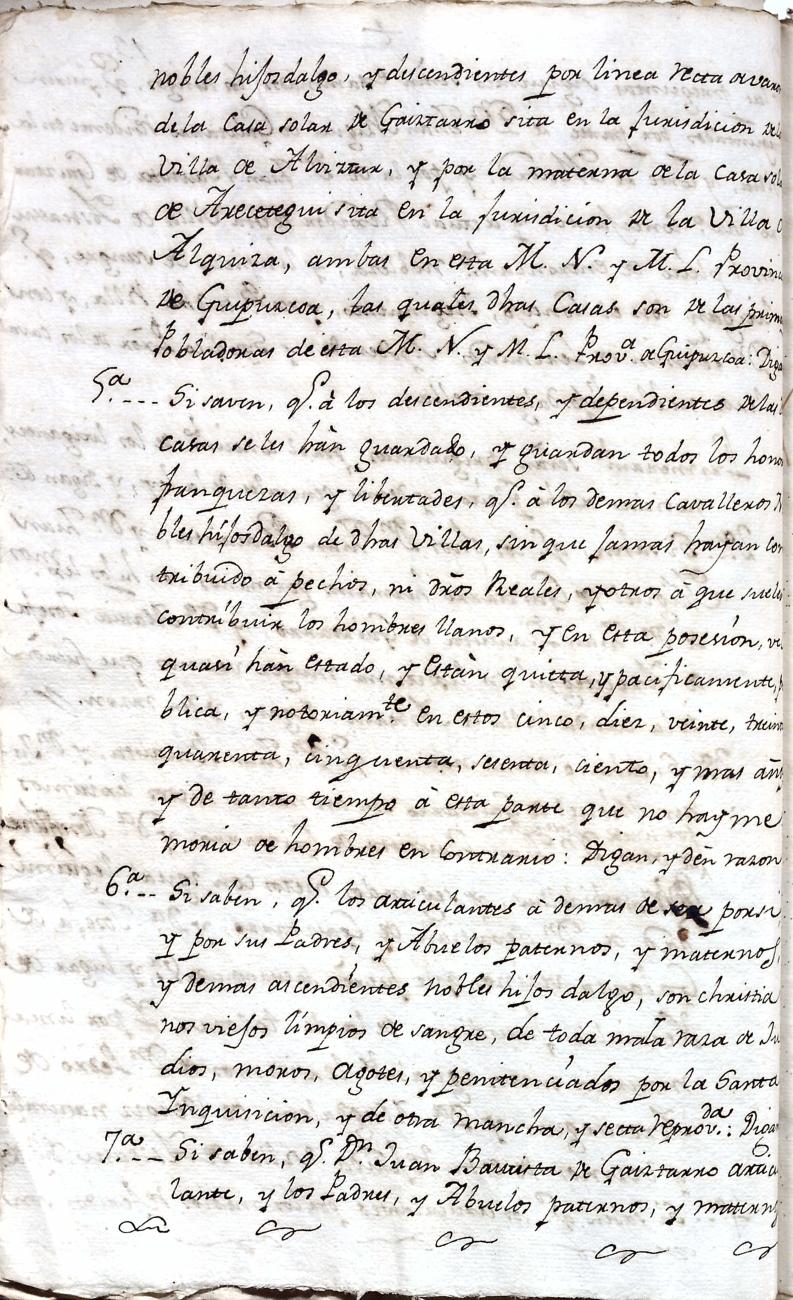 nobles hijosdalgo, y descendientes por linea recta de varo
dela Casa solar de Gaiztarro sita en la Jurisdicion dela
Villa de Alviztur, y por la materna dela Casa sola
de Arecetegui sita en la Jurisdicion de la Villa d
Alquiza, ambas en esta M. N. y M. L. Provinc
de Guipuzcoa, las quales dhas Casas son de las prim
Pobladoras de esta M. N. y M. L. Provª. de Guipuzcoa: Diga
5ª.--- Si saven, qe. à los descendientes, y dependientes de las
casas se les hàn guardado, y guardan todos los hono
franquezas, y libertades, qe. à los demas Cavalleros N
bles hijosdalgo de dhas Villas, sin que Jamas hayan con
tribuido à pechos, ni dròs Reales, y otros à que suelen
contribuir los hombres llanos, y en esta posesion, ve
quasi hàn estado, y estàn quieta, y pacificamente, p
blica, y notoriamte. en estos cinco, diez, veinte, treint
quarenta, cinquenta, sesenta, ciento, y mas añ
y de tanto tiempo à esta parte que no hay me
moria de hombres en Contrario: Digan, y dèn razon
6ª.-- Si saben, qe. los articulantes à demas de ser por si
y por sus Padres, y Abuelos paternos, y maternos,
y demas ascendientes nobles hijos dalgo, son christia
nos viejos limpios de sangre, de toda mala raza de Ju
dios, moros, Agotes, y penitenciados por la Santa
Inquisicion, y de otra mancha, y secta reprovda.: Diga
7ª.--- Si saben, qe. Dn. Juan Bautista de Gaiztarro articu
lante, y los Padres, y Abuelos paternos, y matern